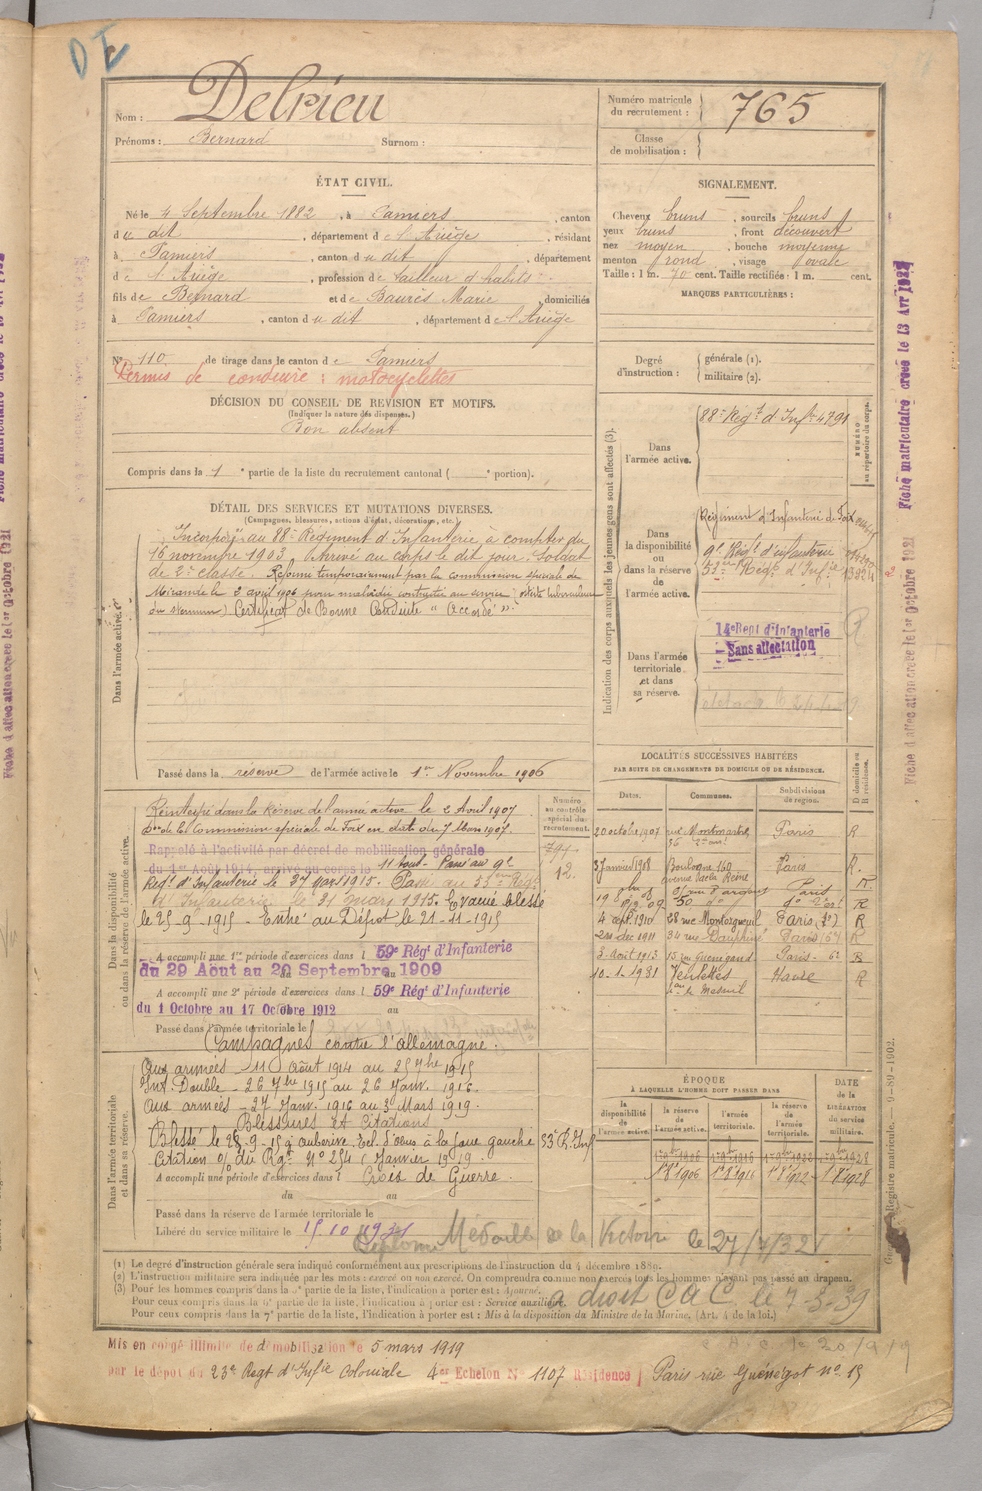 DE
Nom : Delrieu
Prénoms : Bernard Surnom :
Numéro matricule du recrutement : 765
Classe de mobilisation :
ÉTAT CIVIL.
Né le 4 Septembre 1882, à Pamiers, canton
du dit, département de l'Ariège, résidant
à Pamiers, canton du dit, département
de l'Ariège, profession de tailleur d'habits
fils de Bernard et de Baurès Marie, domiciliés
à Pamiers, canton du dit, département de l'Ariège
N° 110 de tirage dans le canton de Pamiers
Permis de conduire : motocyclettes
DÉCISION DU CONSEIL DE REVISION ET MOTIFS.
(Indiquer la nature des dispenses.)
Bon absent
Compris dans la 1e partie de la liste du recrutement cantonal ( e portion).
SIGNALEMENT.
Cheveux bruns, sourcils bruns
yeux bruns, front découvert
nez moyen, bouche moyenne
menton rond, visage ovale
Taille : 1 m. 70 cent. Taille rectifiée : 1 m. cent.
MARQUES PARTICULIÈRES :
Degré d'instruction : générale (1). militaire (2).
DÉTAIL DES SERVICES ET MUTATIONS DIVERSES.
(Campagnes, blessures, actions d'éclat, décorations, etc.)
Dans l'armée active.
Incorporé au 88e Régiment d'Infanterie à compter du
16 novembre 1903, Arrivé au corps le dit jour. Soldat
de 2e classe. Réformé temporairement par la commission spéciale de
Mirande le 2 avril 1906 pour maladie contractée au service
Certificat de Bonne Conduite "Accordé".
Passé dans la réserve de l'armée active le 1er Novembre 1906
Indication des corps auxquels les jeunes gens sont affectés (3).
Dans l'armée active.
88e Régt d'Infie 4791
NUMÉRO au répertoire du corps.
Dans la disponibilité ou dans la réserve de l'armée active.
Régiment d'Infanterie de Foix
9e Régt d'infanterie
53ème Régt d'Infie
Dans l'armée territoriale et dans sa réserve.
14e Regt d'Infanterie
Sans affectation
Dans la disponibilité ou dans la réserve de l'armée active.
Réintégré dans la Réserve de l'armée active le 2 Avril 1907
Don de la Commission spéciale de Foix en date du 7 Mars 1907
Rappelé à l'activité par décret de mobilisation générale
du 1er Août 1914, arrivé au corps le 11 août. Passé au 9e
Régt d'Infanterie le 27 mars 1915. Passé au 53ème Régt
d'Infanterie le 31 mars 1915. Evacué blessé
le 25-9-1915 - Entré au Dépôt le 21-11-1915
A accompli une 1re période d'exercices dans l 59e Régt d'Infanterie
du 29 Août au 20 Septembre 1909
A accompli une 2e période d'exercices dans l 59e Régt d'Infanterie
du 1 Octobre au 17 Octobre 1912
Passé dans l'armée territoriale le
Numéro au contrôle spécial du recrutement.
12.
Dans l'armée territoriale et dans sa réserve.
Campagnes contre l'allemagne.
Aux armées - 11 Août 1914 au 25 7bre 1915
Int. Double - 26 7bre 1915 au 26 Janv. 1916.
Aux armées - 27 Janv. 1916 au 3 Mars 1919.
Blessures et Citations
Blessé le 25-9-15 à Auberive. Ecl. d'obus à la joue gauche 53e R. Inf
Citation O/ du Régt N° 254 (Janvier 1919.
A accompli une période d'exercices dans l Croix de Guerre.
du au
Passé dans la réserve de l'armée territoriale le
Libéré du service militaire le 15.10.1931
Diplome Médaille de la Victoire le 27/7/32
LOCALITÉS SUCCESSIVES HABITÉES
PAR SUITE DE CHANGEMENTS DE DOMICILE OU DE RÉSIDENCE.
Dates. Communes. Subdivisions de région. D domicile ou R résidence.
20 octobre 1907 rue Montmartre 36 2e arrt Paris R
3 janvier 1908 Boulogne 160 avenue de la Reine Paris R.
Paris R
4 sept 1910 28 rue Montorgueil Paris (2e) R
2 déc 1911 34 rue Dauphine Paris (6e) R
3-Août 1913 15 rue Guénégaud Paris- 6e R
10-1-1931 Venlettes Haute R
ÉPOQUE
À LAQUELLE L'HOMME DOIT PASSER DANS
la disponibilité de l'armée active. la réserve de l'armée active. l'armée territoriale. la réserve de l'armée territoriale. DATE de la LIBÉRATION du service militaire.
1er 9bre 1906 1er 9bre 1916 1er 9bre 1922 1er 9bre 1928
1er 8bre 1906 1er 8bre 1916 1er 8bre 1922 1er 8bre 1928
(1) Le degré d'instruction générale sera indiqué conformément aux prescriptions de l'instruction du 4 décembre 1889.
(2) L'instruction militaire sera indiquée par les mots : exercé ou non exercé. On comprendra comme non exercés tous les hommes n'ayant pas passé au drapeau.
(3) Pour les hommes compris dans la 5e partie de la liste, l'indication à porter est : Ajourné.
Pour ceux compris dans la 6e partie de la liste, l'indication à porter est : Service auxiliaire.
Pour ceux compris dans la 7e partie de la liste, l'indication à porter est : Mis à la disposition du Ministre de la Marine. (Art. 4 de la loi.)
a droit C a C. le 7-3-39
Mis en congé illimité de démobilisation le 5 mars 1919
par le dépot du 23e Regt d'Infie Coloniale 4e Echelon N° 1107 Résidence Paris rue Guénégot n° 15
Fiche matriculaire créée le 13 Avr 1922
Fiche d'affectation créée le 1er Octobre 1921
Registre matricule. — 9-89-1902.